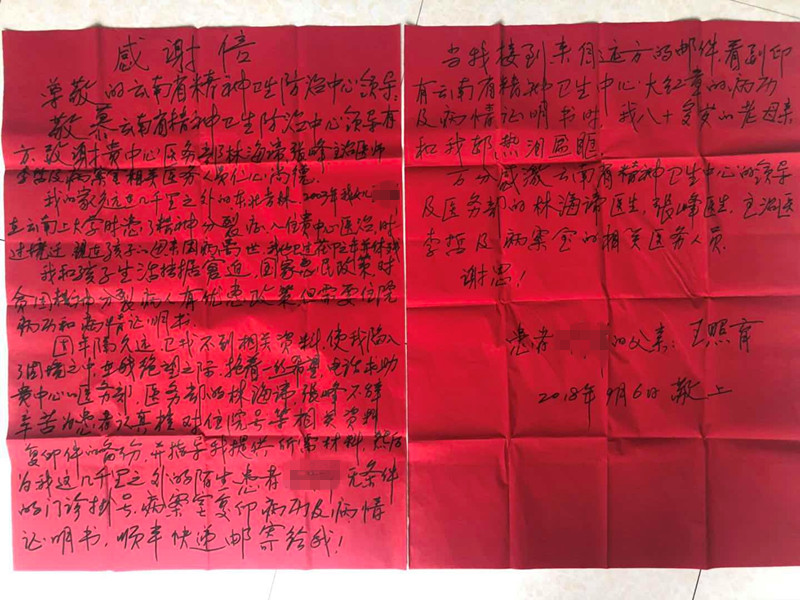 感谢信
尊敬的云南省精神卫生防治中心领导:
敬慕云南省精神卫生防治中心领导有
方,致谢贵中心医务部林海谛张峰主治医师
李哲及病案室相关医务人员仁心尚德。
我的家是远在几千里之外的东北吉林,2007年我儿
在云南上大学时患了精神分裂症,入住贵中心医治,时
过境迁,孩子
我和孩子生活拮据窘迫,国家惠民政策,对
贫困精神分裂病人有优惠政策,但需要住院
病历和病情证明书。
因年隔久远,卫我不到相关资料,使我陷入
了困境之中,在我绝望之际,抱着一丝希望,电话求助
贵中心医务部,医务部的林海谛张峰不辞
辛苦为患者认真核对住院号等相关资料
复印件的备份,并指导我提供所需材料,然后
为我这几千里之外的陌生患者 无条件
的门诊挂号,病案室复印病历及病情
证明书,顺丰快递邮寄给我!
当我接到来自远方的邮件看到印
有云南省精神卫生中心大红章的病历
及病情证明书时,我八十多岁的老母亲
和我都热泪盈眶
万分感激云南省精神卫生中心的领导
及医务部的林海谛医生,张峰医生,主治医
李哲及病案室的相关医务人员。
谢恩!
患者 的父亲:王照育
2018年9月6日敬上